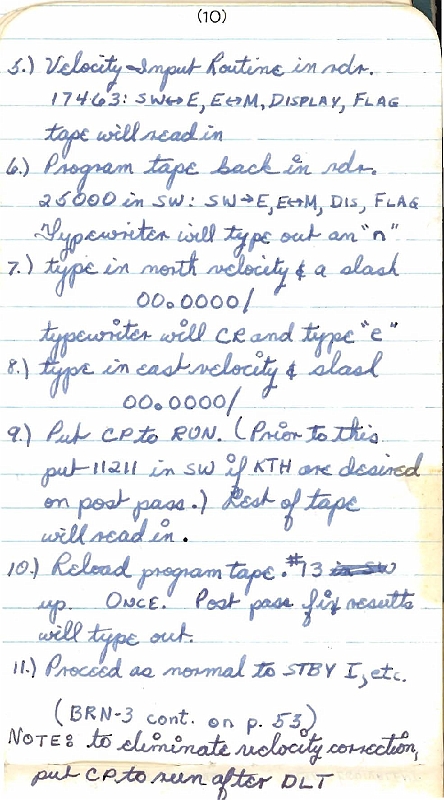 (10)
5.) Velocity Input Routine in rdr.
17463: SW↔E, E↔M, DISPLAY, FLAG
tape will read in
6.) Program tape back in rdr.
25000 in SW: SW→E, E↔M, DIS, FLAG
Typewriter will type out an "n"
7.) type in north velocity & a slash
00.0000/
typewriter will CR and type "e"
8.) type in east velocity & slash
00.0000/
9.) Put CP to RUN. (Prior to this
put 11211 in SW if KTH are desired
on post pass.) Rest of tape
will read in.
10.) Reload program tape. #13 in SW
up. ONCE. Post pass fix results
will type out.
11.) Proceed as normal to STBY I, etc.
(BRN-3 cont. on p. 53)
NOTE: to eliminate velocity correction,
put CP to run after DLT